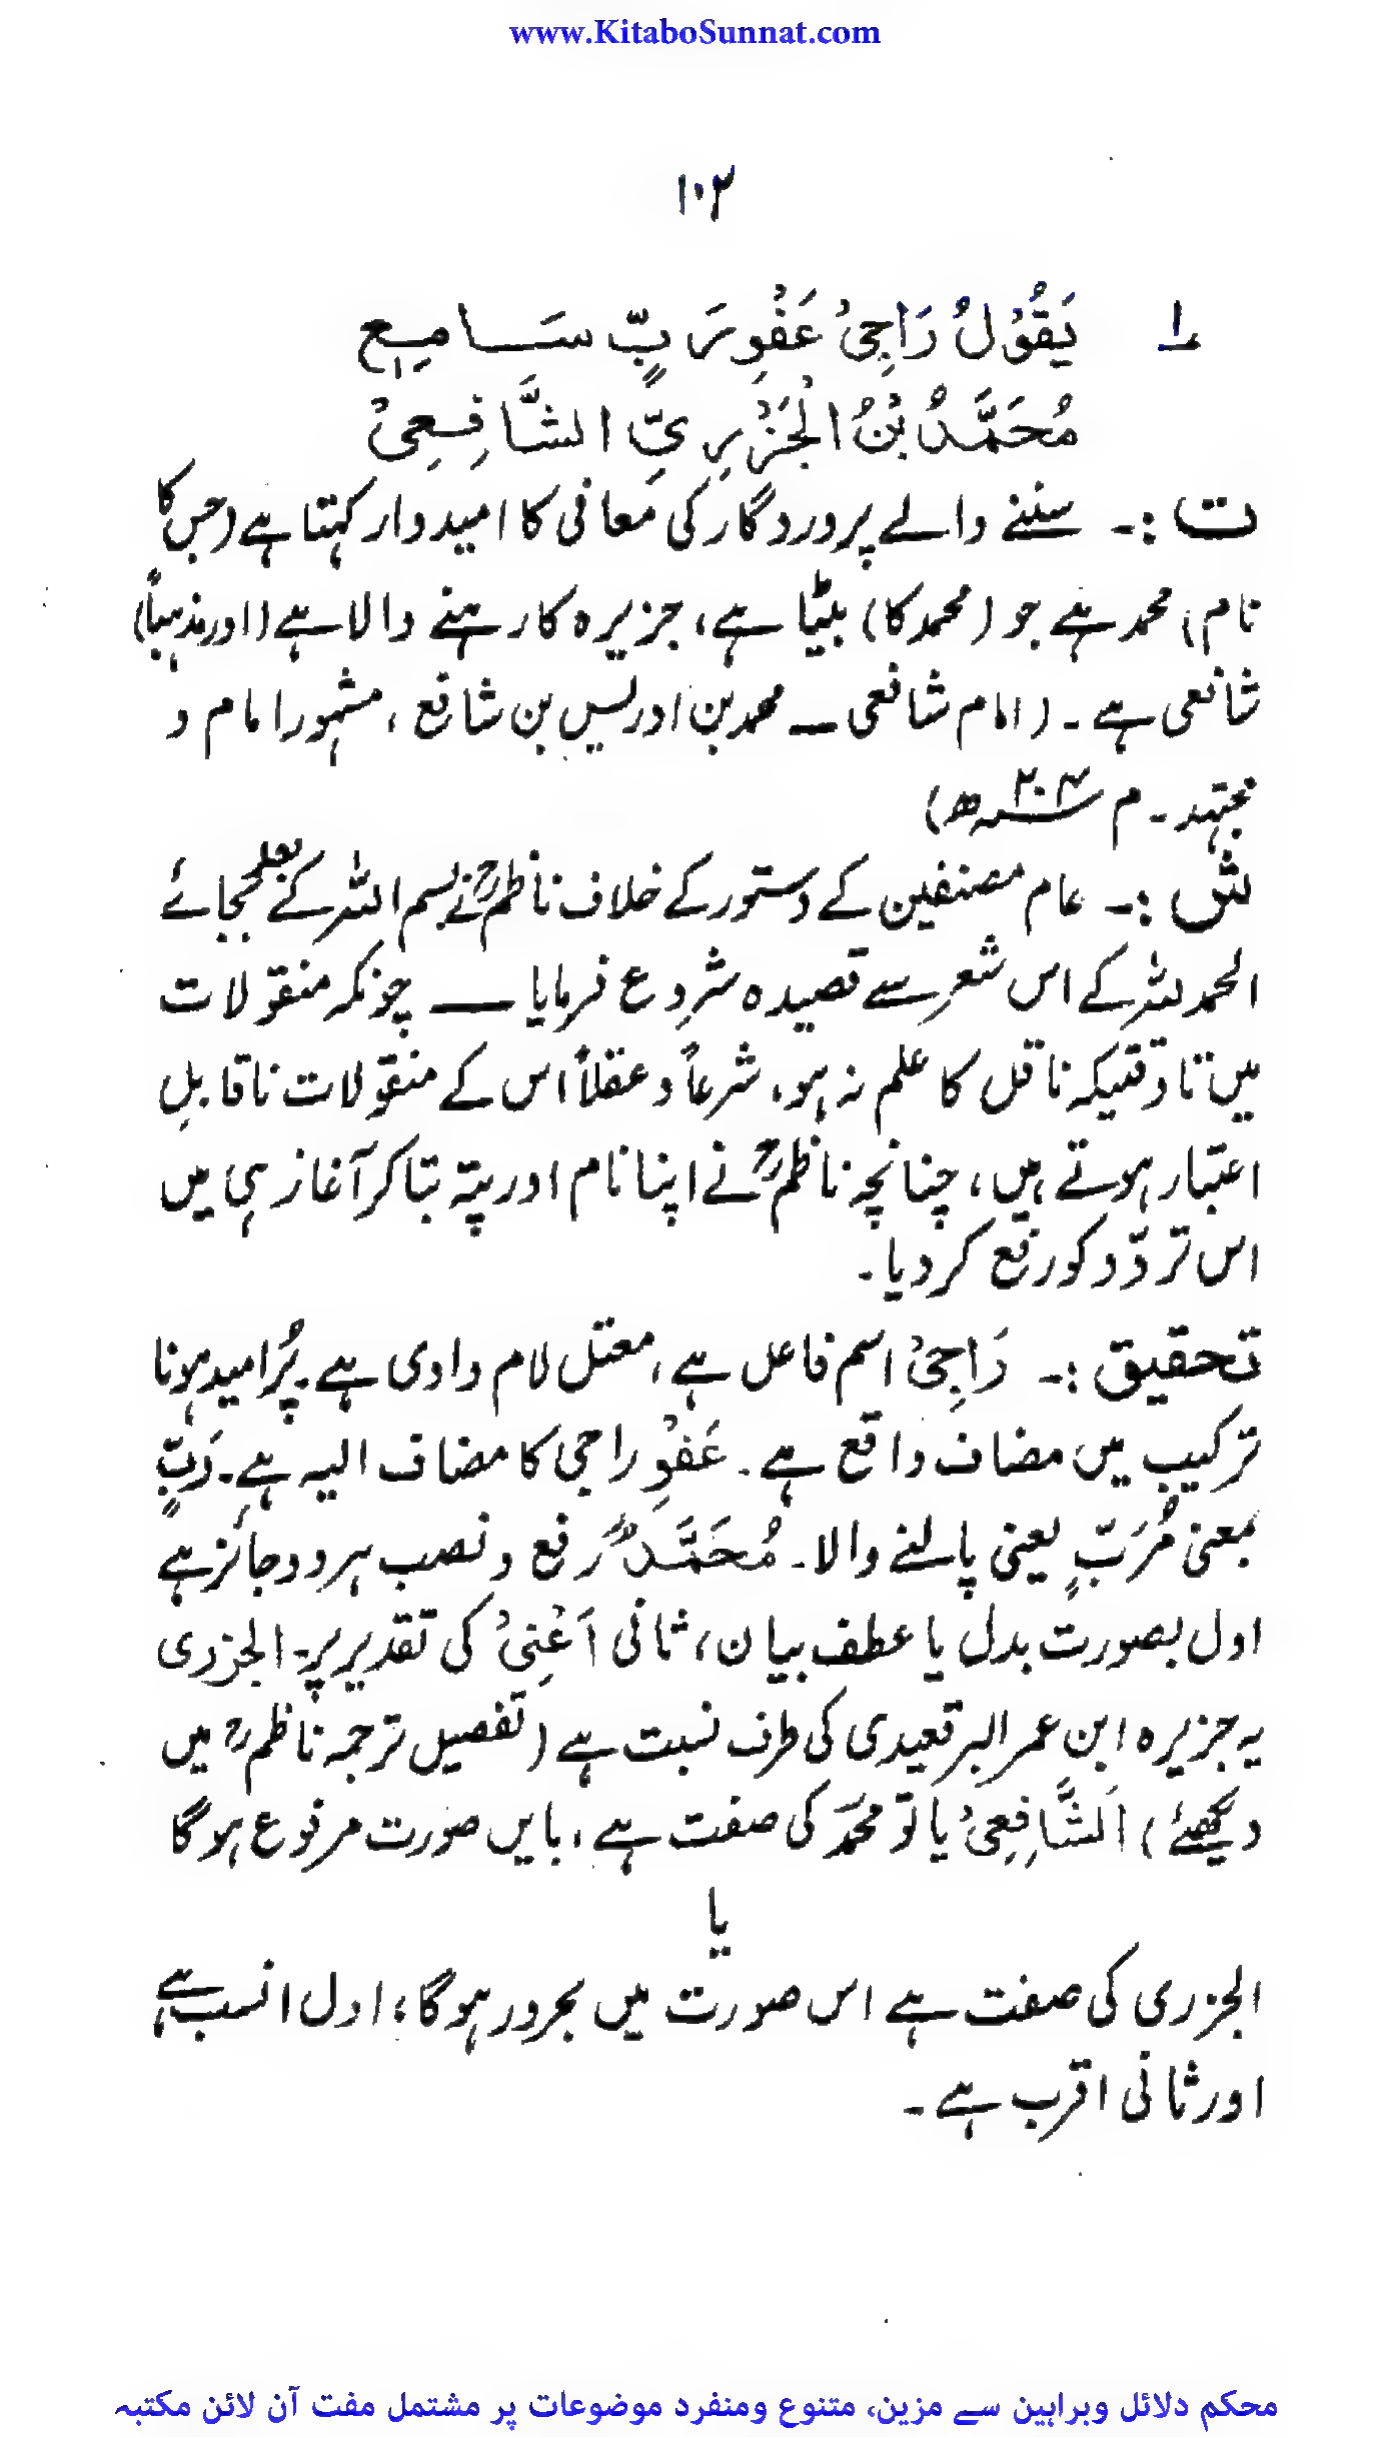 www.KitaboSunnat.com
۱۰۲
۱ يَقُوْلُ رَاجِیْ عَفْوِ رَبٍّ سَــامِـعِ
مُحَمَّدُ بْنُ الْجَزْرِيِّ الشَّافِـعِیْ
ت :۔ سننے والے پروردگار کی معافی کا امیدوار کہتا ہے (جس کا
نام) محمد ہے جو (محمد کا) بیٹا ہے، جزیرہ کا رہنے والا ہے (اور مذہباً)
شافعی ہے ۔ (امام شافعی ــ محمد بن ادریس بن شافع ، مشہور امام و
مجتہد ۔ م ۲۰۴ھ)
ش :۔ عام مصنفین کے دستور کے خلاف ناظمؒ نے بسم اللہ کے بعد بجائے
الحمد للہ کے اس شعر سے قصیدہ شروع فرمایا ــ چونکہ منقولات
میں تاوقتیکہ ناقل کا علم نہ ہو، شرعاً و عقلاً اس کے منقولات ناقابلِ
اعتبار ہوتے ہیں، چنانچہ ناظمؒ نے اپنا نام اور پتہ بتا کر آغاز ہی میں
اس تردّد کو رفع کر دیا ۔
تحقیق :۔ رَاجِیْ اسم فاعل ہے، معتل لام واوی ہے۔ پُرامید ہونا
ترکیب میں مضاف واقع ہے ۔ عَفْوِ راجی کا مضاف الیہ ہے۔ رَبٍّ
بمعنی مُرَبٍّ یعنی پالنے والا۔ مُحَمَّدٌ رفع و نصب ہر دو جائز ہے
اول بصورت بدل یا عطف بیان، ثانی اَعْنِیْ کی تقدیر پر۔ الجزری
یہ جزیرہ ابن عمر البرقعیدی کی طرف نسبت ہے (تفصیل ترجمہ ناظمؒ میں
دیکھئے) اَلشَّافِعِیْ یا تو محمدؐ کی صفت ہے، بایں صورت مرفوع ہوگا
یا
الجزری کی صفت ہے اس صورت میں مجرور ہوگا، اول انسب ہے
اور ثانی اقرب ہے ۔
محکم دلائل وبراہین سے مزین، متنوع ومنفرد موضوعات پر مشتمل مفت آن لائن مکتبہ